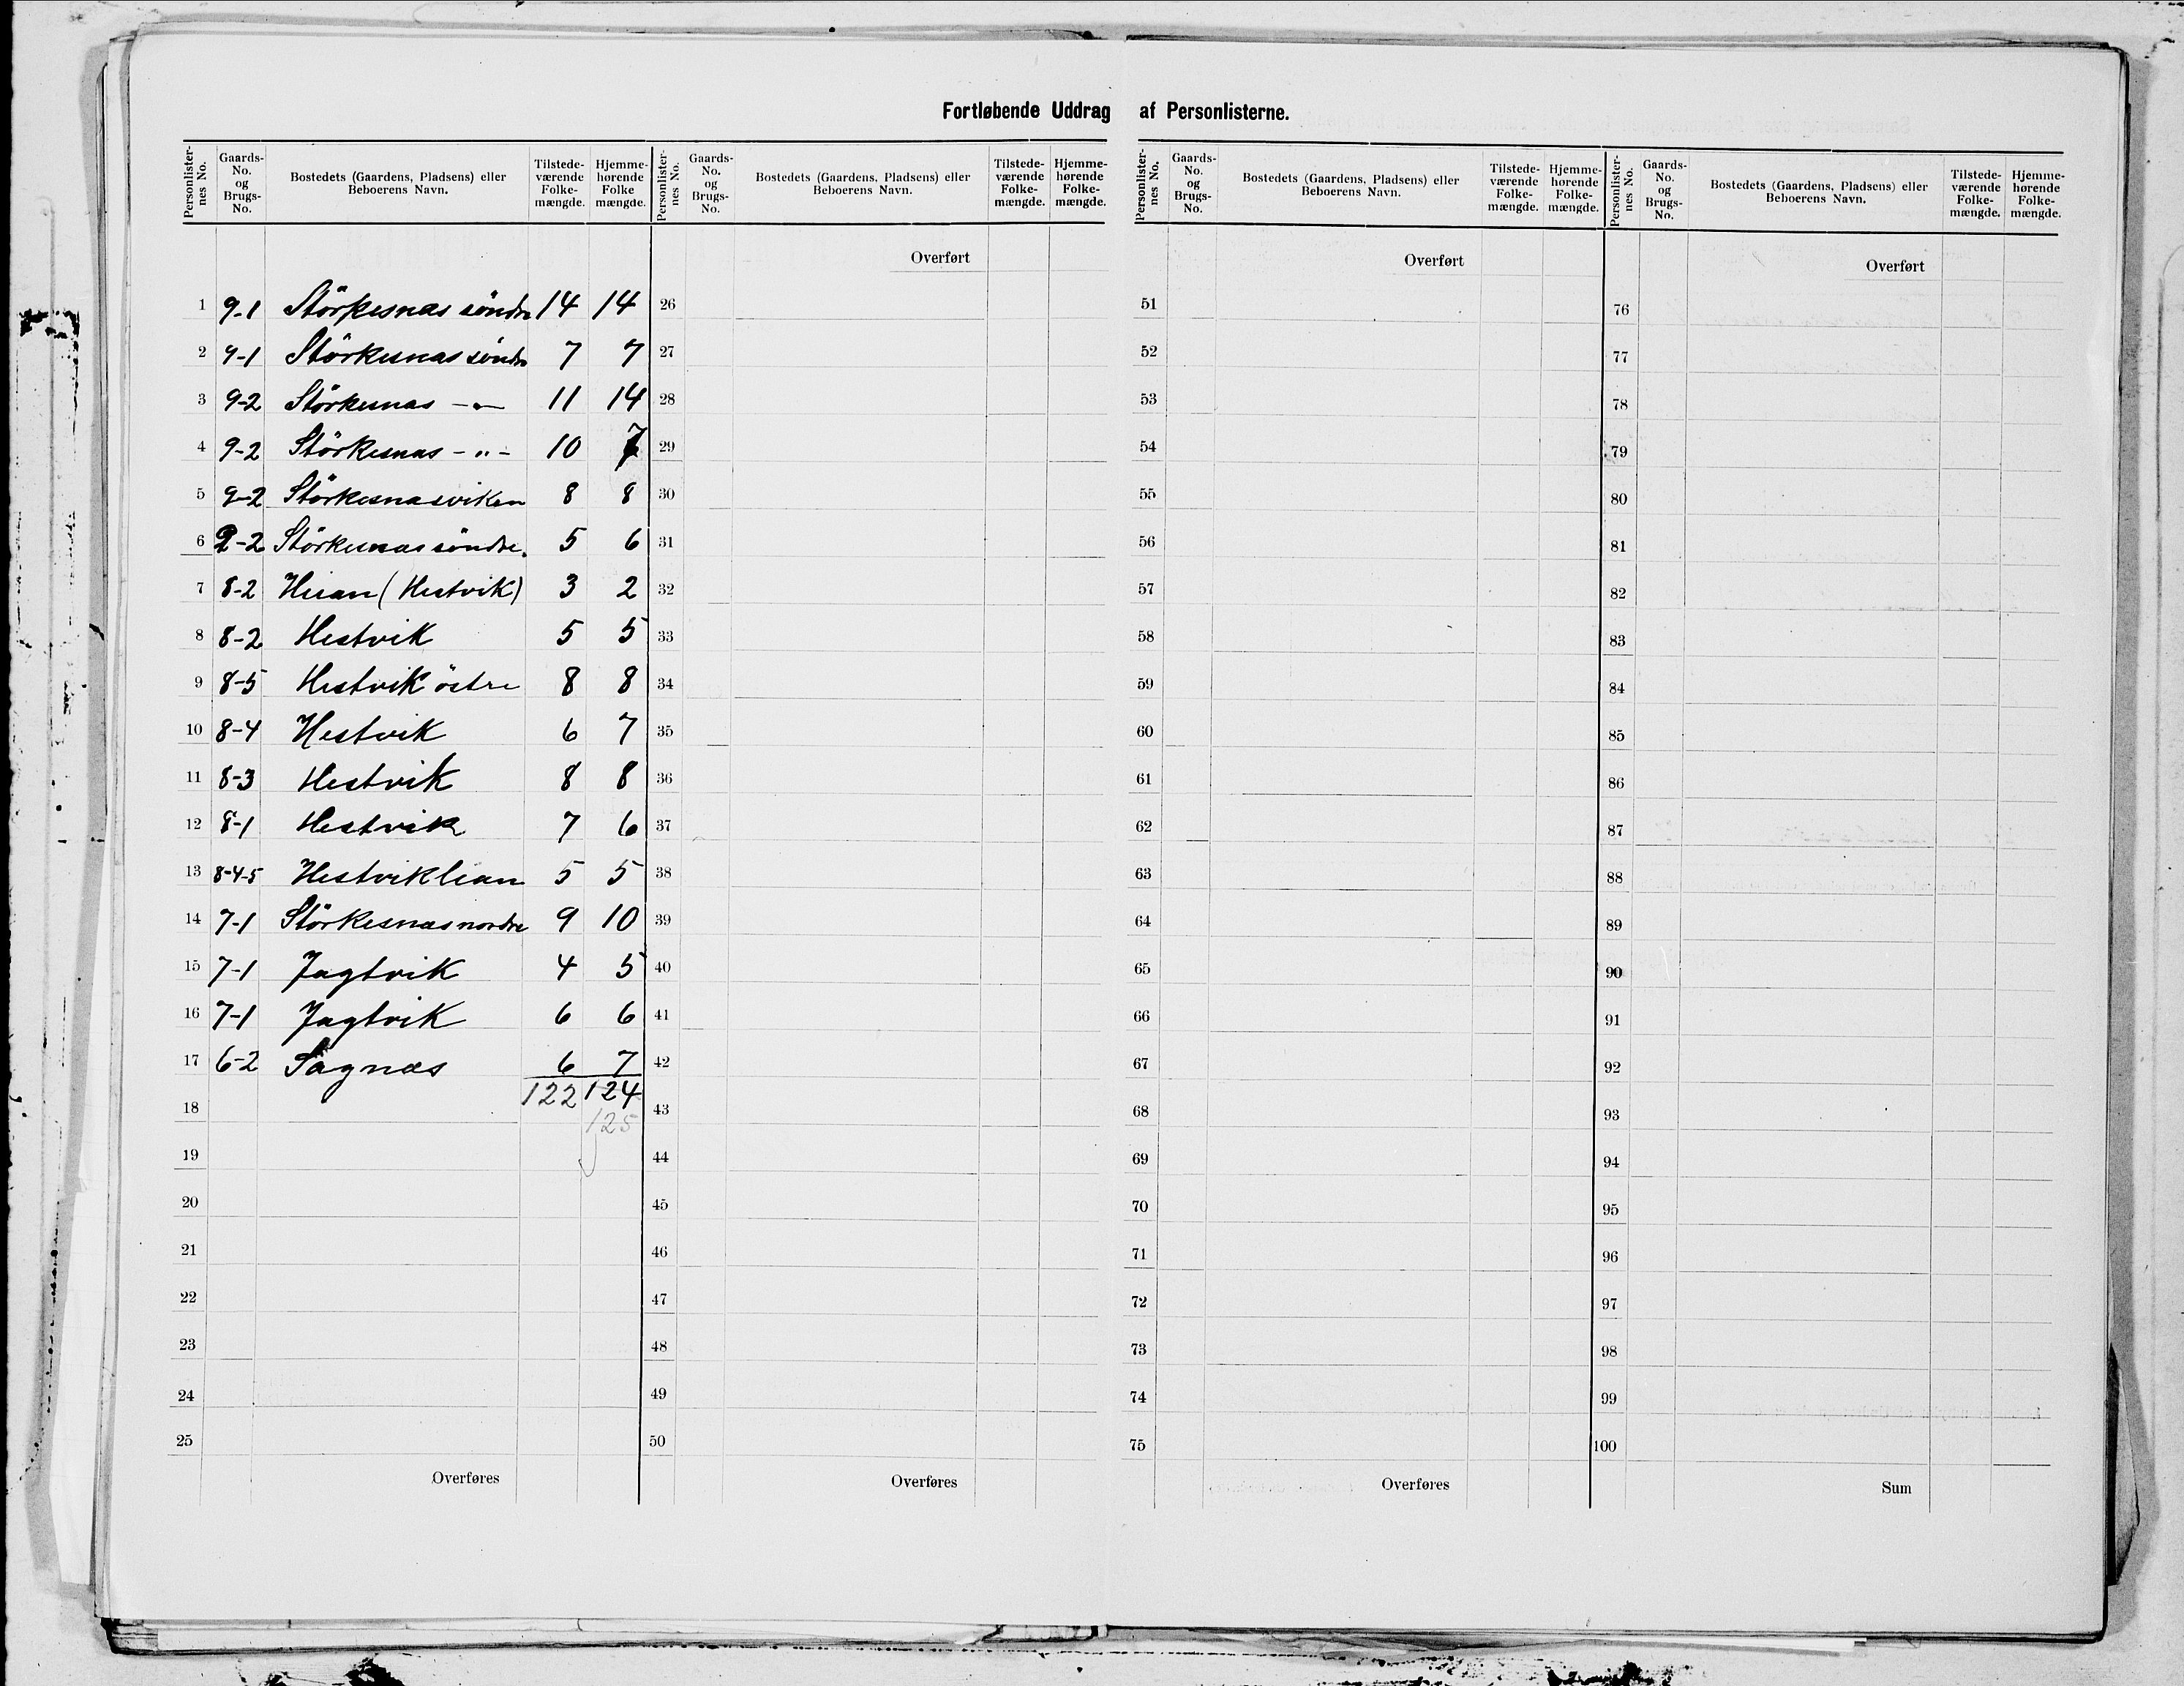 Fortløbende Uddrag af Personlisterne.
Personlister-nes No. Gaards-No. og Brugs-No. Bostedets (Gaardens, Pladsens) eller Beboerens Navn. Tilstede-værende Folke-mængde. Hjemme-hørende Folke mængde. Personlister-nes No. Gaards-No. og Brugs-No. Bostedets (Gaardens, Pladsens) eller Beboerens Navn. Tilstede-værende Folke-mængde. Hjemme-hørende Folke-mængde. Personlister-nes No. Gaards-No. og Brugs-No. Bostedets (Gaardens, Pladsens) eller Beboerens Navn. Tilstede-værende Folke-mængde. Hjemme-hørende Folke-mængde. Personlister-nes No. Gaards-No. og Brugs-No. Bostedets (Gaardens, Pladsens) eller Beboerens Navn. Tilstede-værende Folke-mængde. Hjemme-hørende Folke-mængde.
Overført Overført Overført
1 9-1 Störkesnæs söndre 14 14 26 51 76
2 9-1 Störkesnæs söndre 7 7 27 52 77
3 9-2 Störkesnæs -"- 11 14 28 53 78
4 9-2 Störkesnæs -"- 10 7 29 54 79
5 9-2 Störkesnæsviken 8 8 30 55 80
6 9-2 Störkesnæs söndre. 5 6 31 56 81
7 8-2 Heian (Hestvik) 3 2 32 57 82
8 8-2 Hestvik 5 5 33 58 83
9 8-5 Hestvik östre 8 8 34 59 84
10 8-4 Hestvik 6 7 35 60 85
11 8-3 Hestvik 8 8 36 61 86
12 8-1 Hestvik 7 6 37 62 87
13 8-4-5 Hestviklian 5 5 38 63 88
14 7-1 Störkesnæs nordre 9 10 39 64 89
15 7-1 Jagtvik 4 5 40 65 90
16 7-1 Jagtvik 6 6 41 66 91
17 6-2 Sagnæs 6 7 42 67 92
122 124
18 125 43 68 93
19 44 69 94
20 45 70 95
21 46 71 96
22 47 72 97
23 48 73 98
24 49 74 99
25 50 75 100
Overføres Overføres Overføres Sum